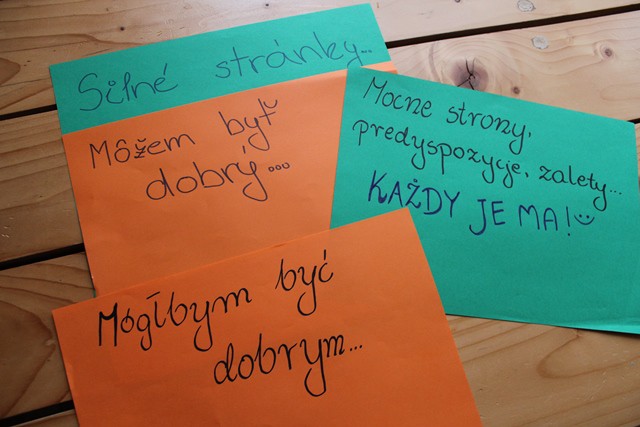 Silné stránky...
Môžem byť
dobrý...
Mocne strony,
predyspozycje, zalety...
KAŻDY JE MA!
Mógłbym być
dobrym...